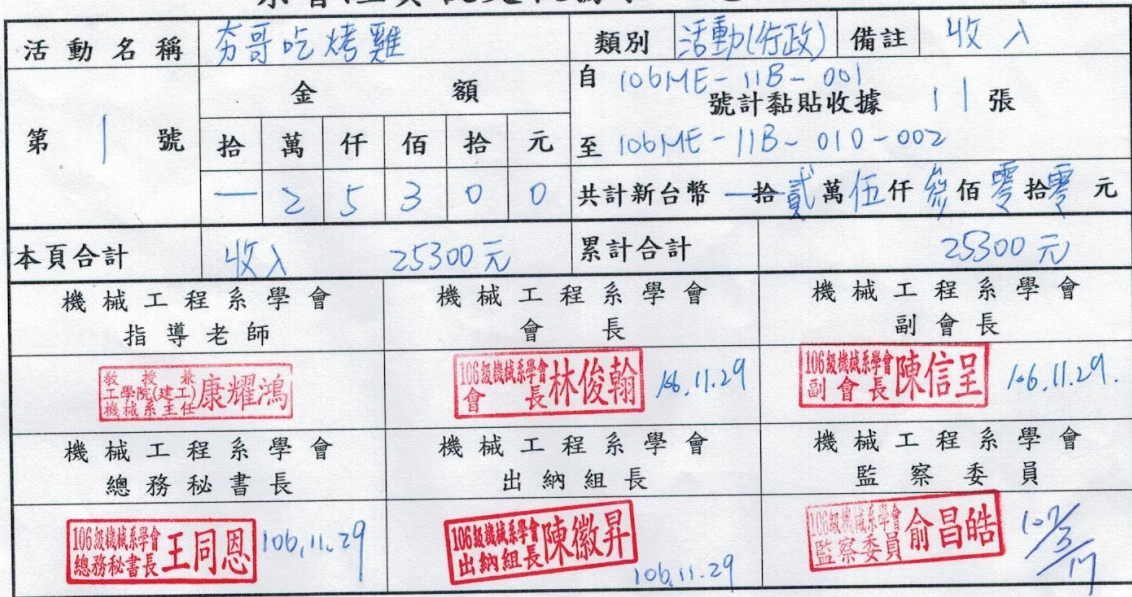 活動名稱 夯哥吃烤雞 類別 活動(行政) 備註 收入
第 1 號 金額 自 106ME-11B-001
號計黏貼收據 11 張
拾 萬 仟 佰 拾 元 至 106ME-11B-010-002
一 2 5 3 0 0 共計新台幣 一拾貳萬伍仟參佰零拾零元
本頁合計 收入 25300元 累計合計 25300元
機械工程系學會 機械工程系學會 機械工程系學會
指導老師 會長 副會長
教授兼
工學院(建工)
機械系主任 康耀鴻
106級機械系學會
會長 林俊翰 106.11.29
106級機械系學會
副會長 陳信呈 106.11.29.
機械工程系學會 機械工程系學會 機械工程系學會
總務秘書長 出納組長 監察委員
106級機械系學會
總務秘書長 王同恩 106.11.29
106級機械系學會
出納組長 陳徽昇
106.11.29
106級機械系學會
監察委員 俞昌皓 107/3/17